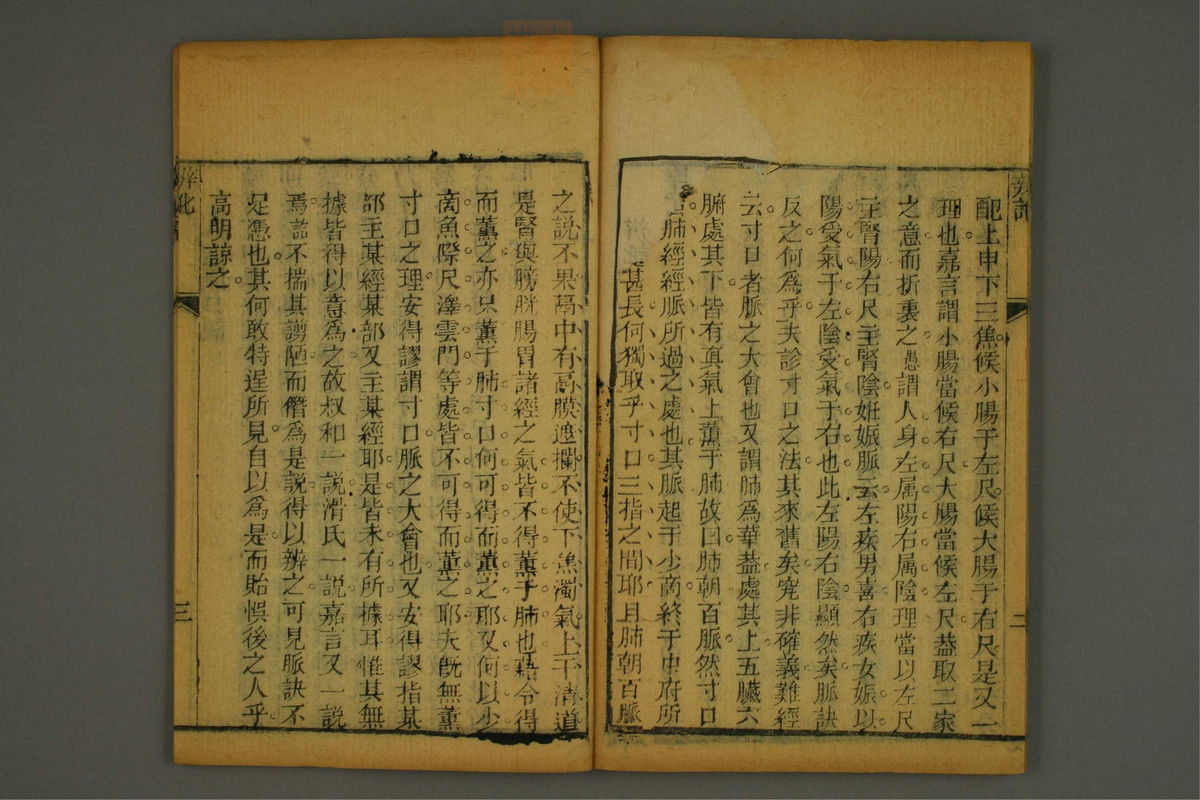 配上申下三焦候小腸于左尺候大腸于右尺是又一
理也嘉言謂小腸當候右尺大腸當候左尺蓋取二家
之意而折衷之愚謂人身左属陽右属陰理當以左尺
主腎陽右尺主腎陰姙娠脈云左疾男喜右疾女娠以
陽受氣于左陰受氣于右也此左陽右陰顯然矣脈訣
反之何爲乎夫診寸口之法其來舊矣究非確義難經
云寸口者脈之大會也又謂肺爲華葢處其上五臟六
腑處其下皆有真氣上薰于肺故曰肺朝百脈然寸口
肺經經脈所過之處也其脈起于少商終于中府所
甚長何獨取乎寸口三指之間耶且肺朝百脈
之説不果鬲中有鬲膜遮攔不使下焦濁氣上干清道
是腎與膀胱腸胃諸經之氣皆不得薰于肺也藉令得
而薰之亦只薰于肺寸口何可得而薰之耶又何以少
商魚際尺澤雲門等處皆不可得而薰之耶夫既無薰
寸口之理安得謬謂寸口脈之大會也又安得謬指某
部主某經某部又主某經耶是皆未有所據耳惟其無
據皆得以意爲之故叔和一説滑氏一説嘉言又一説
焉兹不揣其謭陋而僭爲是説得以辨之可見脈訣不
足憑也其何敢特逞所見自以爲是而貽悞後之人乎
高明諒之
三
三